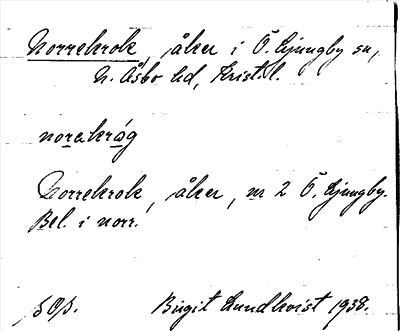 Norrekrok, åker i Ö. Ljungby sn,
N. Åsbo hd, Krist. l.
norekråg
Norrekrok, åker, nr 2 Ö. Ljungby.
Bel. i norr.
Birgit Lundkvist 1938.